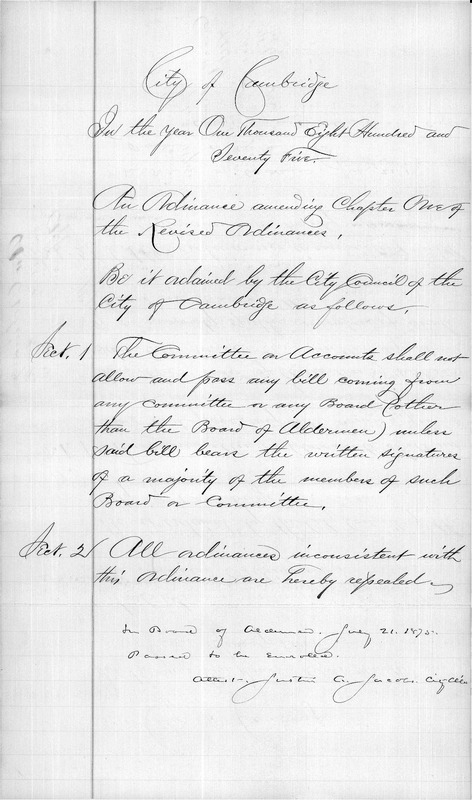 City of Cambridge
In the year One Thousand Eight Hundred and
Seventy Five.
An Ordinance amending Chapter One of
the Revised Ordinances.
Be it ordained by the City Council of the
City of Cambridge as follows.
Sect. 1 The Committee on Accounts shall not
allow and pass any bill coming from
any committee or any Board (other
than the Board of Aldermen) unless
said bill bears the written signatures
of a majority of the members of such
Board or Committee.
Sect. 2 All ordinances inconsistent with
this ordinance are hereby repealed
In Board of Aldermen. July 21. 1875.
Passed to be enrolled.
Attest. Justin A. Jacobs. City Clerk